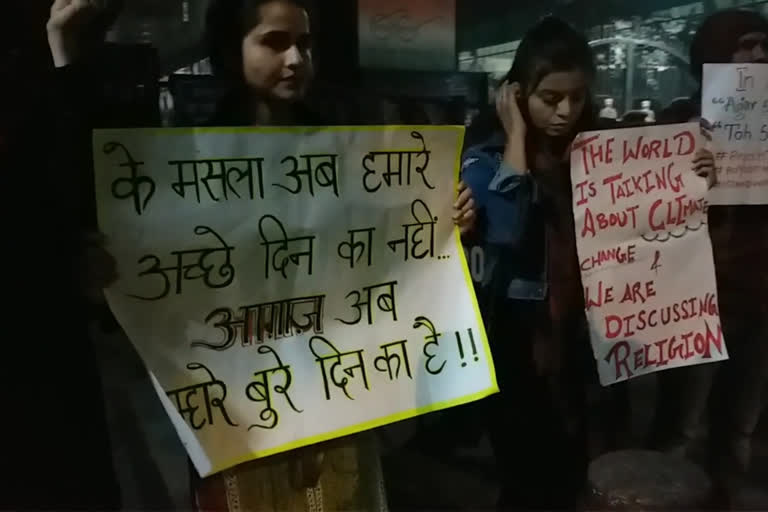 के मसला अब हमारे
अच्छे दिन का नहीं...
आगाज़ अब
म्हारे बुरे दिन का है !!
THE WORLD
IS TALKING
ABOUT CLIMATE
CHANGE &
WE ARE
DISCUSSING
RELIGION
In
"Agar
"Toh